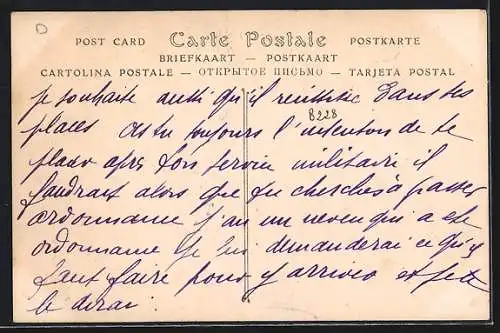 POST CARD Carte Postale POSTKARTE
BRIEFKAART — POSTKAART
CARTOLINA POSTALE — ОТКРЫТОЕ ПИСЬМО — TARJETA POSTAL
je souhaite aussi qu'il réussisse dans ses
8228
places as tu toujours l'intention de te
placer après ton service militaire il
faudrait alors que tu cherches à passer
ordonnance j'ai un neveu qui a été
ordonnance je lui demanderai ce qu'il
faut faire pour y arriver et je te
le dirai